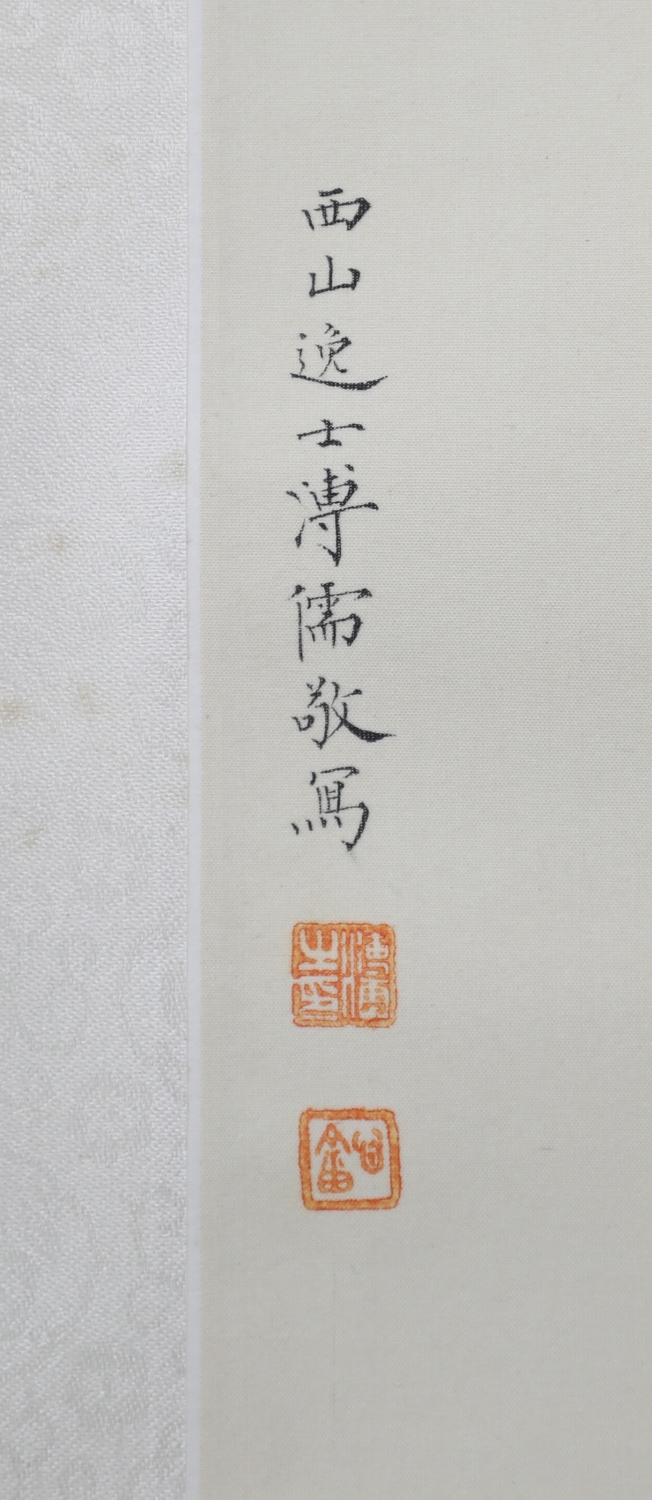 西山逸士溥儒敬寫
溥儒之印